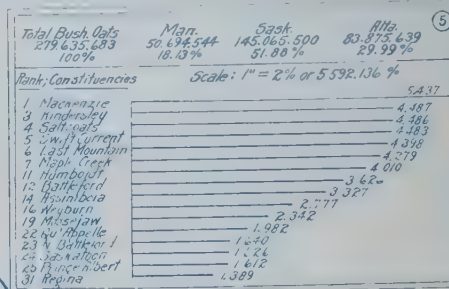 5
Total Bush. Oats Man. Sask. Alta.
279.635.683 50.694.544 145.065.500 83.875.639
100% 18.13% 51.88% 29.99%
Rank; Constituencies Scale: 1" = 2% or 5 592.136 %
1 Mackenzie 5.437
3 Kindersley 4.487
4 Salt.oats 4.486
5 Swift Current 4.483
6 Last Mountain 4.398
7 Maple Creek 4.279
11 Humboldt 4.010
12 Battleford 3.626
14 Assiniboia 3.327
16 Weyburn 2.777
19 Moosejaw 2.342
22 Qu'Appelle 1.982
23 N Battleford 1.640
24 Saskatoon 1.626
25 Prince Albert 1.612
31 Regina 1.389